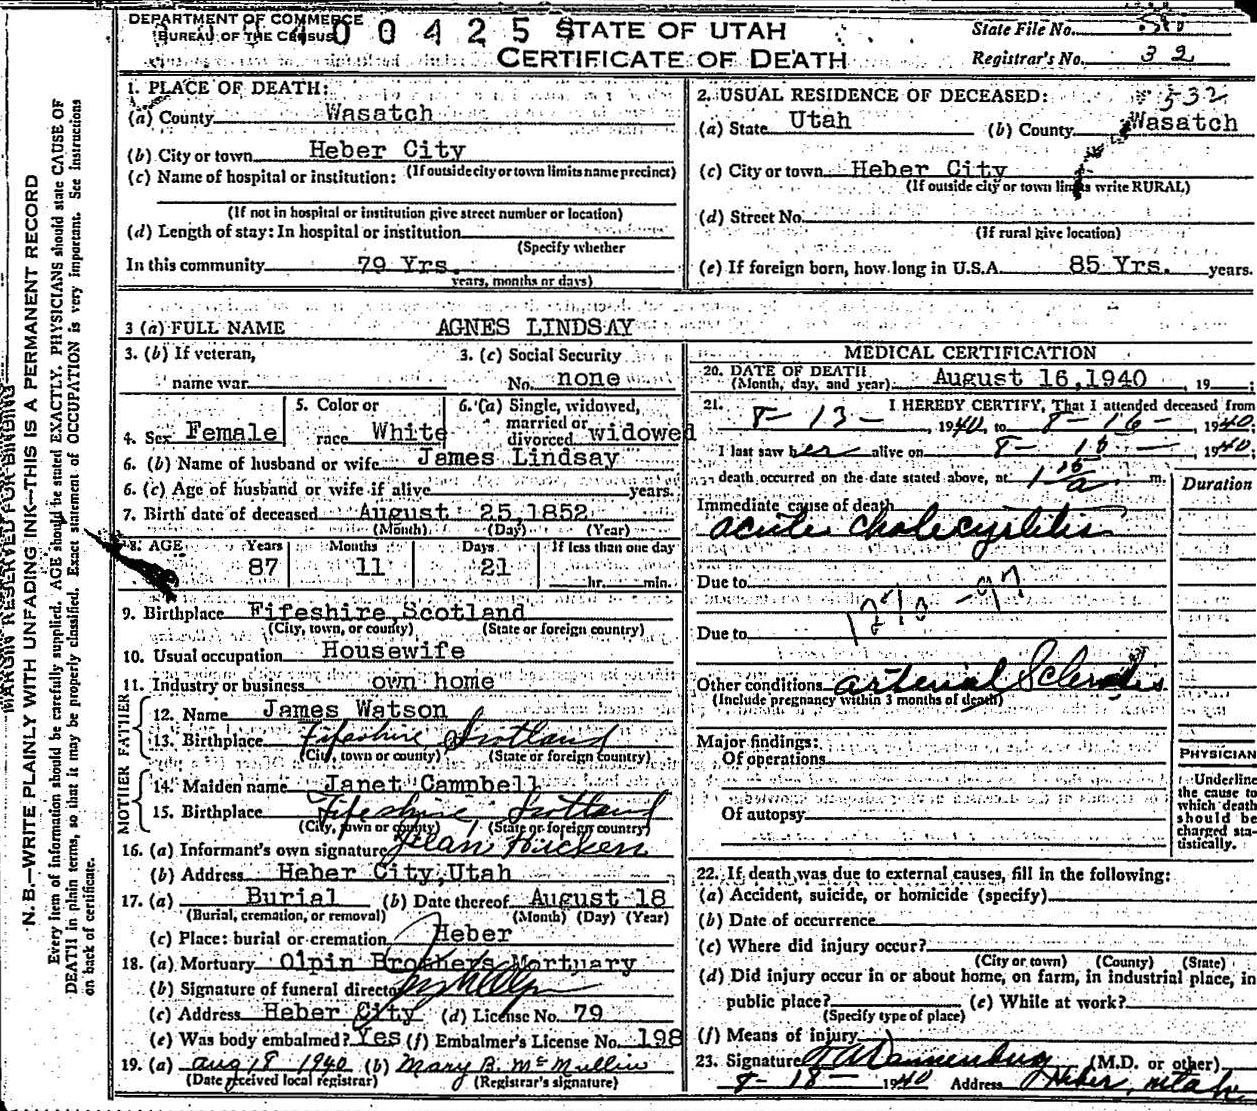 DEPARTMENT OF COMMERCE
BUREAU OF THE CENSUS
0 0 4 2 5
STATE OF UTAH
CERTIFICATE OF DEATH
State File No.
Registrar's No. 32
1. PLACE OF DEATH:
(a) County Wasatch
(b) City or town Heber City
(If outside city or town limits name precinct)
(c) Name of hospital or institution:
(If not in hospital or institution give street number or location)
(d) Length of stay: In hospital or institution
(Specify whether
In this community 79 Yrs.
years, months or days)
2. USUAL RESIDENCE OF DECEASED: 532
(a) State Utah (b) County Wasatch
(c) City or town Heber City
(If outside city or town limits write RURAL)
(d) Street No.
(If rural give location)
(e) If foreign born, how long in U.S.A. 85 Yrs. years.
3 (a) FULL NAME AGNES LINDSAY
3. (b) If veteran, name war
3. (c) Social Security No. none
4. Sex Female
5. Color or race White
6. (a) Single, widowed, married or divorced widowed
6. (b) Name of husband or wife James Lindsay
6. (c) Age of husband or wife if alive years.
7. Birth date of deceased August 25, 1852
(Month) (Day) (Year)
8. AGE Years Months Days If less than one day
87 11 21 hr. min.
9. Birthplace Fifeshire, Scotland
(City, town, or county) (State or foreign country)
10. Usual occupation Housewife
11. Industry or business own home
FATHER
12. Name James Watson
13. Birthplace Fifeshire, Scotland
(City, town or county) (State or foreign country)
MOTHER
14. Maiden name Janet Campbell
15. Birthplace Fifeshire, Scotland
(City, town or county) (State or foreign country)
16. (a) Informant's own signature Hicken
(b) Address Heber City, Utah
17. (a) Burial (b) Date thereof August 18
(Burial, cremation, or removal) (Month) (Day) (Year)
(c) Place: burial or cremation Heber
18. (a) Mortuary Olpin Brothers Mortuary
(b) Signature of funeral director
(c) Address Heber City (d) License No. 79
(e) Was body embalmed? Yes (f) Embalmer's License No. 198
19. (a) Aug 18 1940 (b) Mary B. McMullin
(Date received local registrar) (Registrar's signature)
MEDICAL CERTIFICATION
20. DATE OF DEATH
(Month, day, and year): August 16, 1940, 19 ;
21. I HEREBY CERTIFY, That I attended deceased from
8-13-, 1940, to 8-16-, 1940;
I last saw her alive on 8- , 1940;
death occurred on the date stated above, at m.
Duration
Immediate cause of death
acute cholecystitis
Due to
Due to
Other conditions arterial Sclerosis
(Include pregnancy within 3 months of death)
Major findings:
Of operations
Of autopsy
PHYSICIAN
Underline
the cause to
which death
should be
charged sta-
tistically.
22. If death was due to external causes, fill in the following:
(a) Accident, suicide, or homicide (specify)
(b) Date of occurrence
(c) Where did injury occur?
(City or town) (County) (State)
(d) Did injury occur in or about home, on farm, in industrial place, in
public place? (e) While at work?
(Specify type of place)
(f) Means of injury
23. Signature Dannenburg (M.D. or other)
8-18- 1940 Address Heber, Utah
MARGIN RESERVED FOR BINDING
N. B.—WRITE PLAINLY WITH UNFADING INK—THIS IS A PERMANENT RECORD
Every item of information should be carefully supplied. AGE should be stated EXACTLY. PHYSICIANS should state CAUSE OF
DEATH in plain terms, so that it may be properly classified. Exact statement of OCCUPATION is very important. See instructions
on back of certificate.